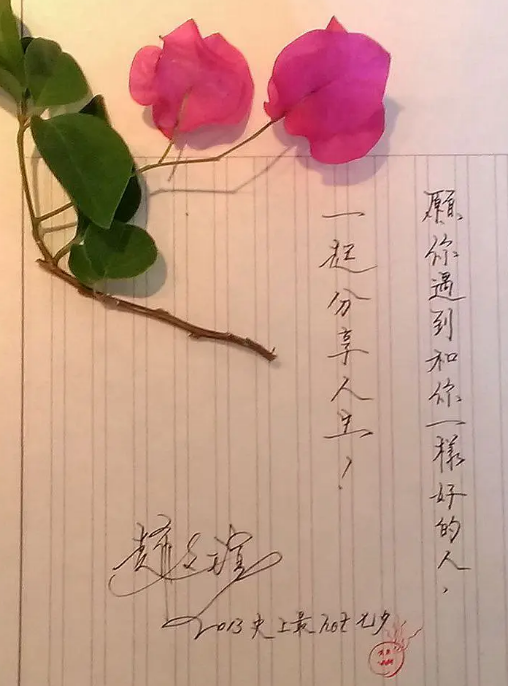 願你遇到和你一樣好的人，
一起分享人生！
2013史上最hot七夕